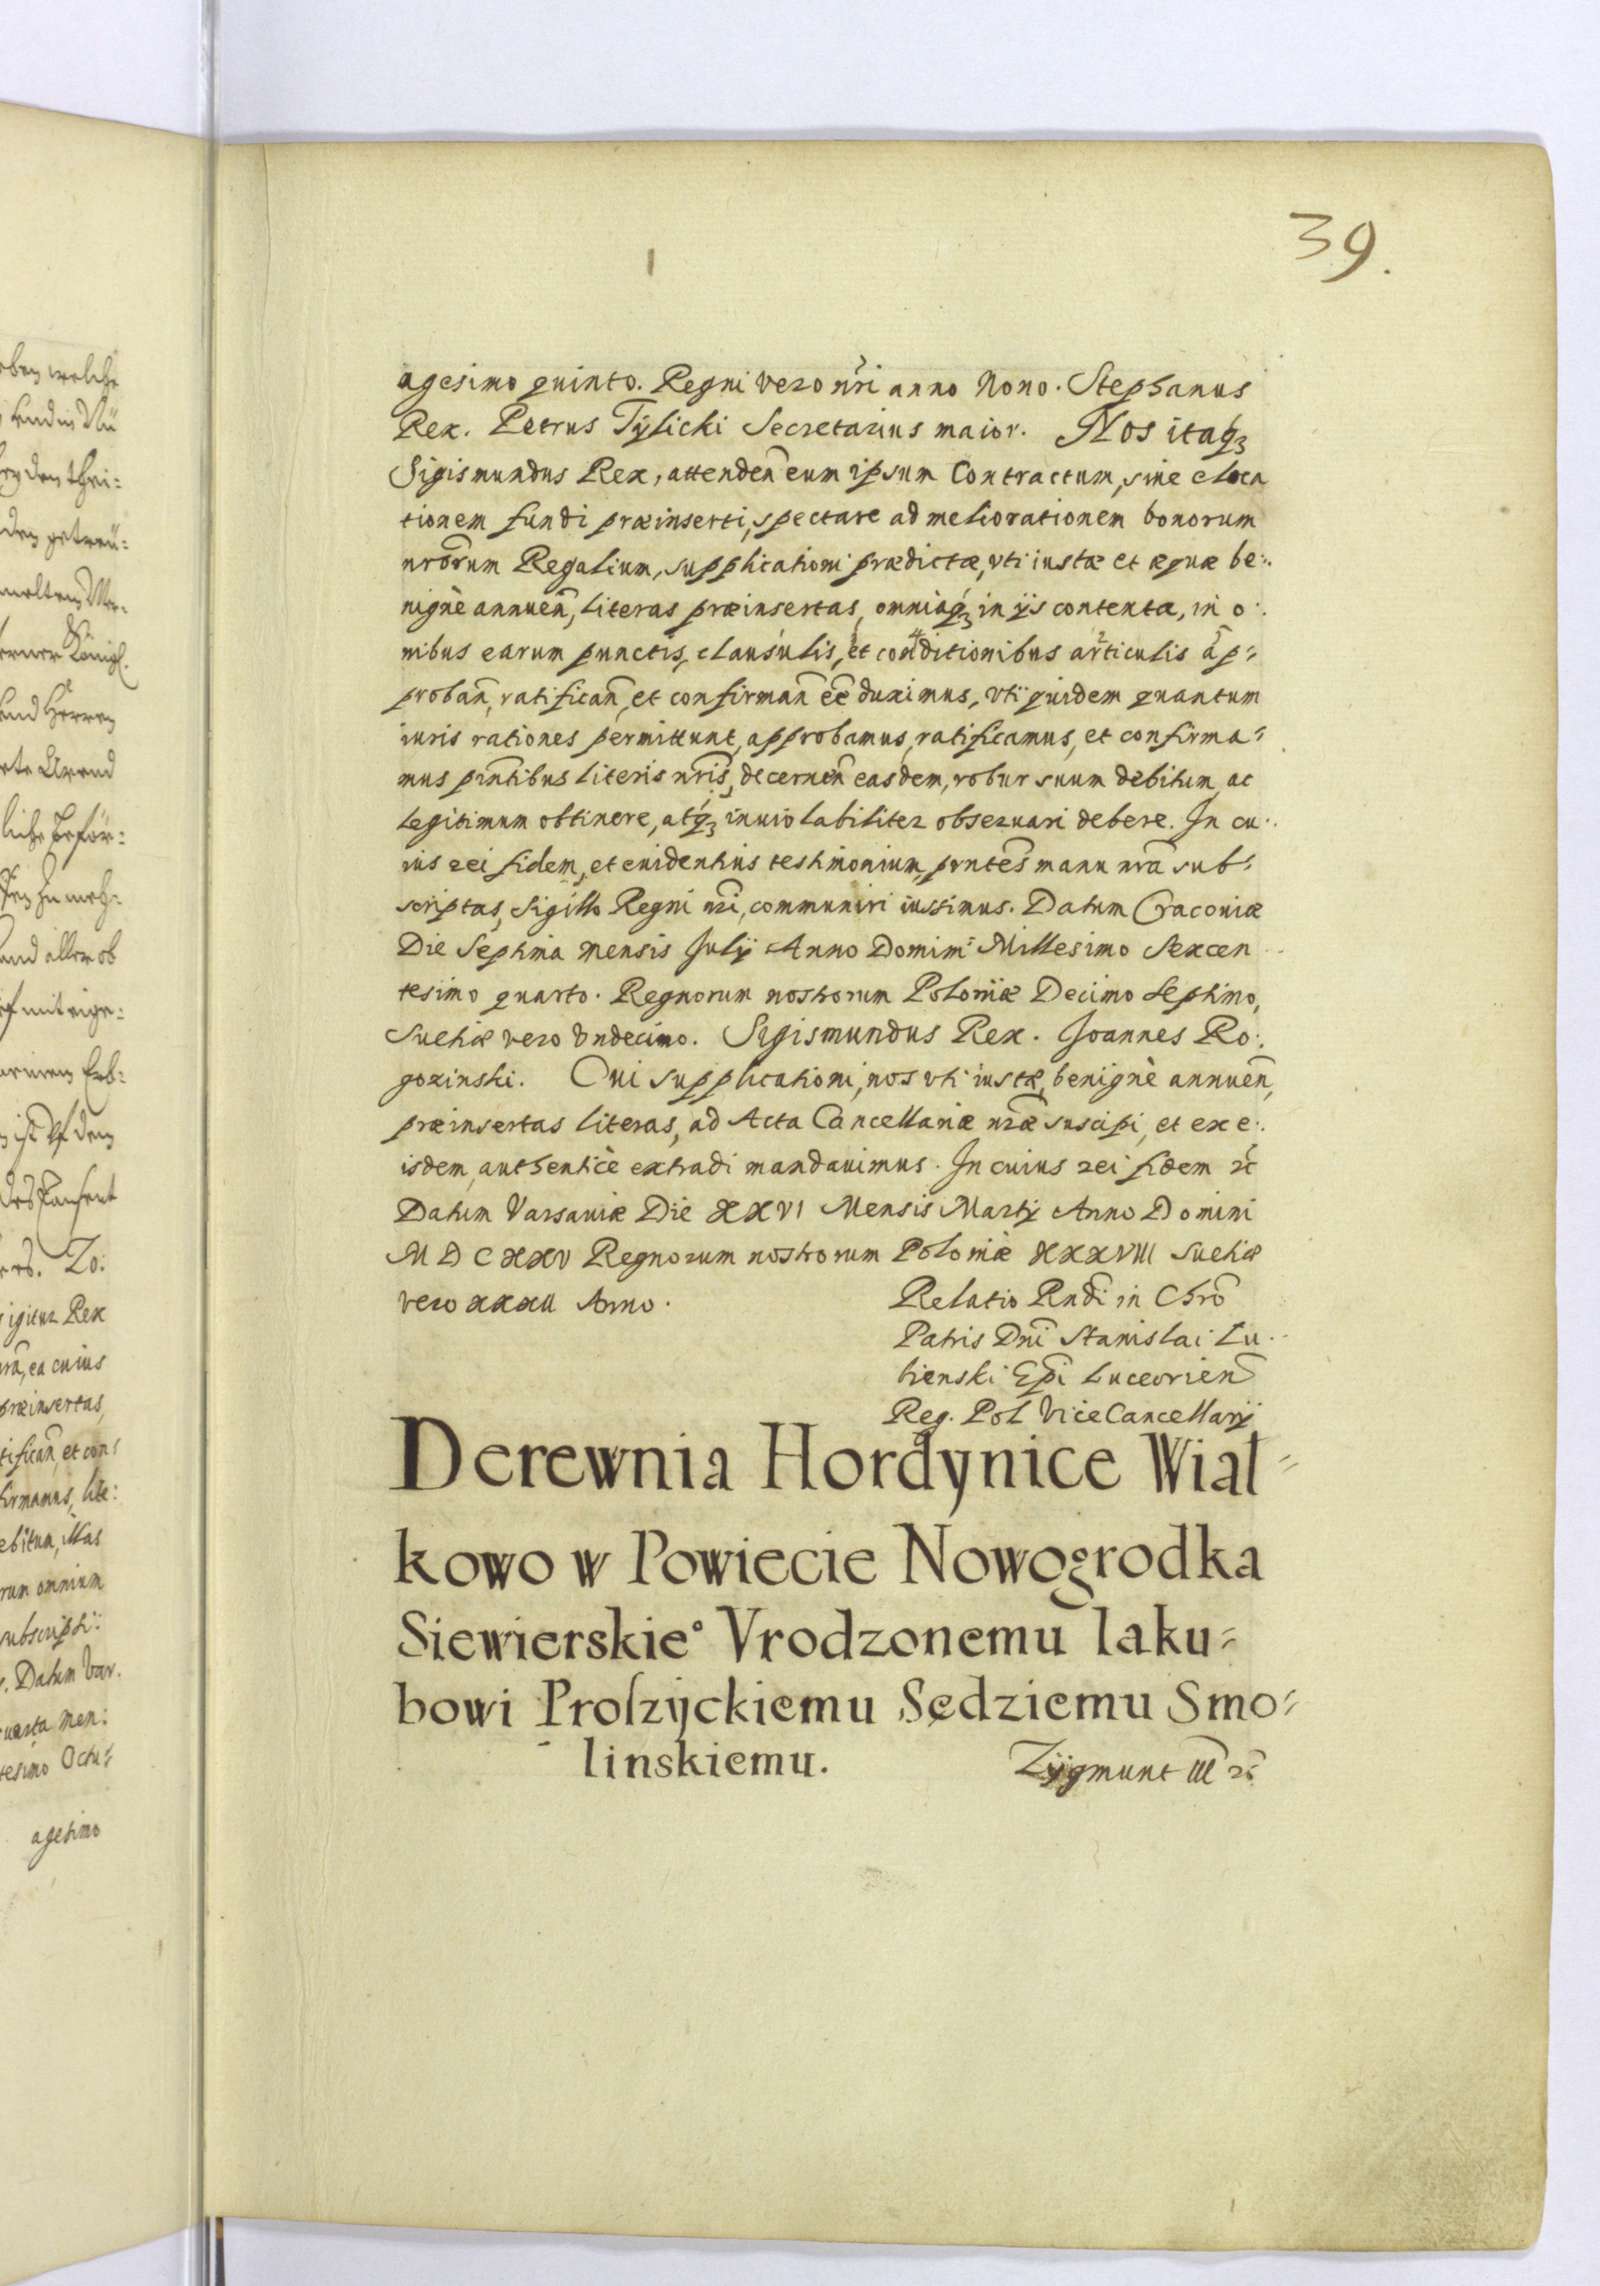 39.
agesimo quinto. Regni vero nr̃i anno Nono. Stephanus
Rex. Petrus Tÿlicki Secretarius maior. Nos itaq3
Sigismundus Rex, attendeñ eum ipsum Contractum, siue eloca
tionem fundi præinserti, spectare ad meliorationem bonorum
nrõrum Regalium, supplicationi prædictæ, vti iustæ et æquæ be:
nignè annueñ, literas præinsertas, omniaq3 in ijs contenta, in o:
nibus earum punctis, clausulis, et conditionibus articulis ap=
probañ, ratificañ, et confirmañ eẽ duximus, vti quidem quantum
iuris rationes permittunt, approbamus, ratificamus, et confirma=
mus pñtibus literis nr̃is, decerneñ easdem, robur suum debitum, ac
legitimum obtinere, atq3 inuiolabiliter obseruari debere. In cu:
ius rei fidem, et euidentius testimonium, pñtes manu nrã sub=
scriptas, Sigillo Regni nr̃i, communiri iussimus. Datum Cracouiæ
Die Septima mensis Julÿ Anno Domini Millesimo Sexcen
tesimo quarto. Regnorum nostrorum Poloniæ Decimo septimo,
Suetiæ vero Vndecimo. Sigismundus Rex. Joannes Ro:
gozinski. Cui supplicationi, nos vti iustæ, benignè annueñ,
præinsertas literas, ad Acta Cancellariæ nræ̃ suscipi, et ex e:
isdem, authenticè extradi mandauimus. In cuius rei fidem ꝛc̃
Datum Varsauiæ Die XXVI Mensis Martÿ Anno Domini
MDCXXV Regnorum nostrorum Poloniæ XXXVIII Suetiæ
vero XXXII Anno.
Relatio Rñdi in Chrõ
Patris Dñi Stanislai Lu:
bienski Epĩ Luceorieñ
Reg. Pol ViceCancellarÿ
Derewnia Hordynice Wial=
kowo w Powiecie Nowogrodka
Siewierskie° Vrodzonemu Iaku=
bowi Proſzÿckiemu Sędziemu Smo=
linskiemu.
Zÿgmunt III ꝛc̃